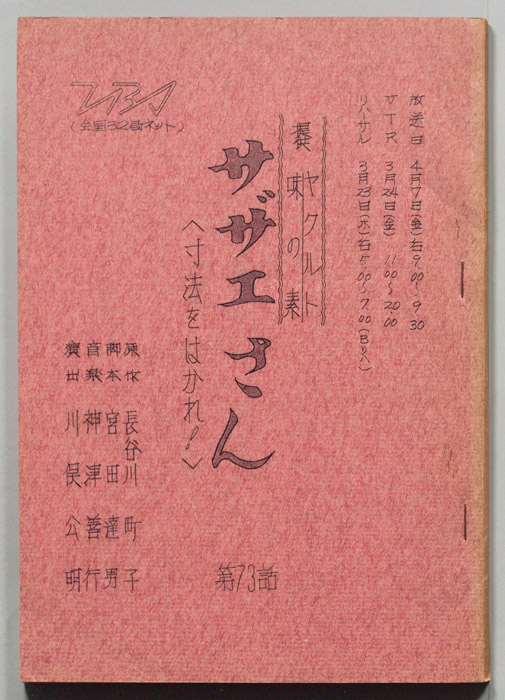 放送日 4月7日(金)后9.00〜9.30
VTR 3月24日(金) 11.00〜20.00
3月23日(木)后5.00〜7.00(Bリハ)
ヤクルト
味の素
サザエさん
〈寸法をはかれ!〉
第73話
TBS
(全国32局ネット)
原作 長谷川町子
脚本 宮田達男
音楽 神津善行
演出 川俣公明